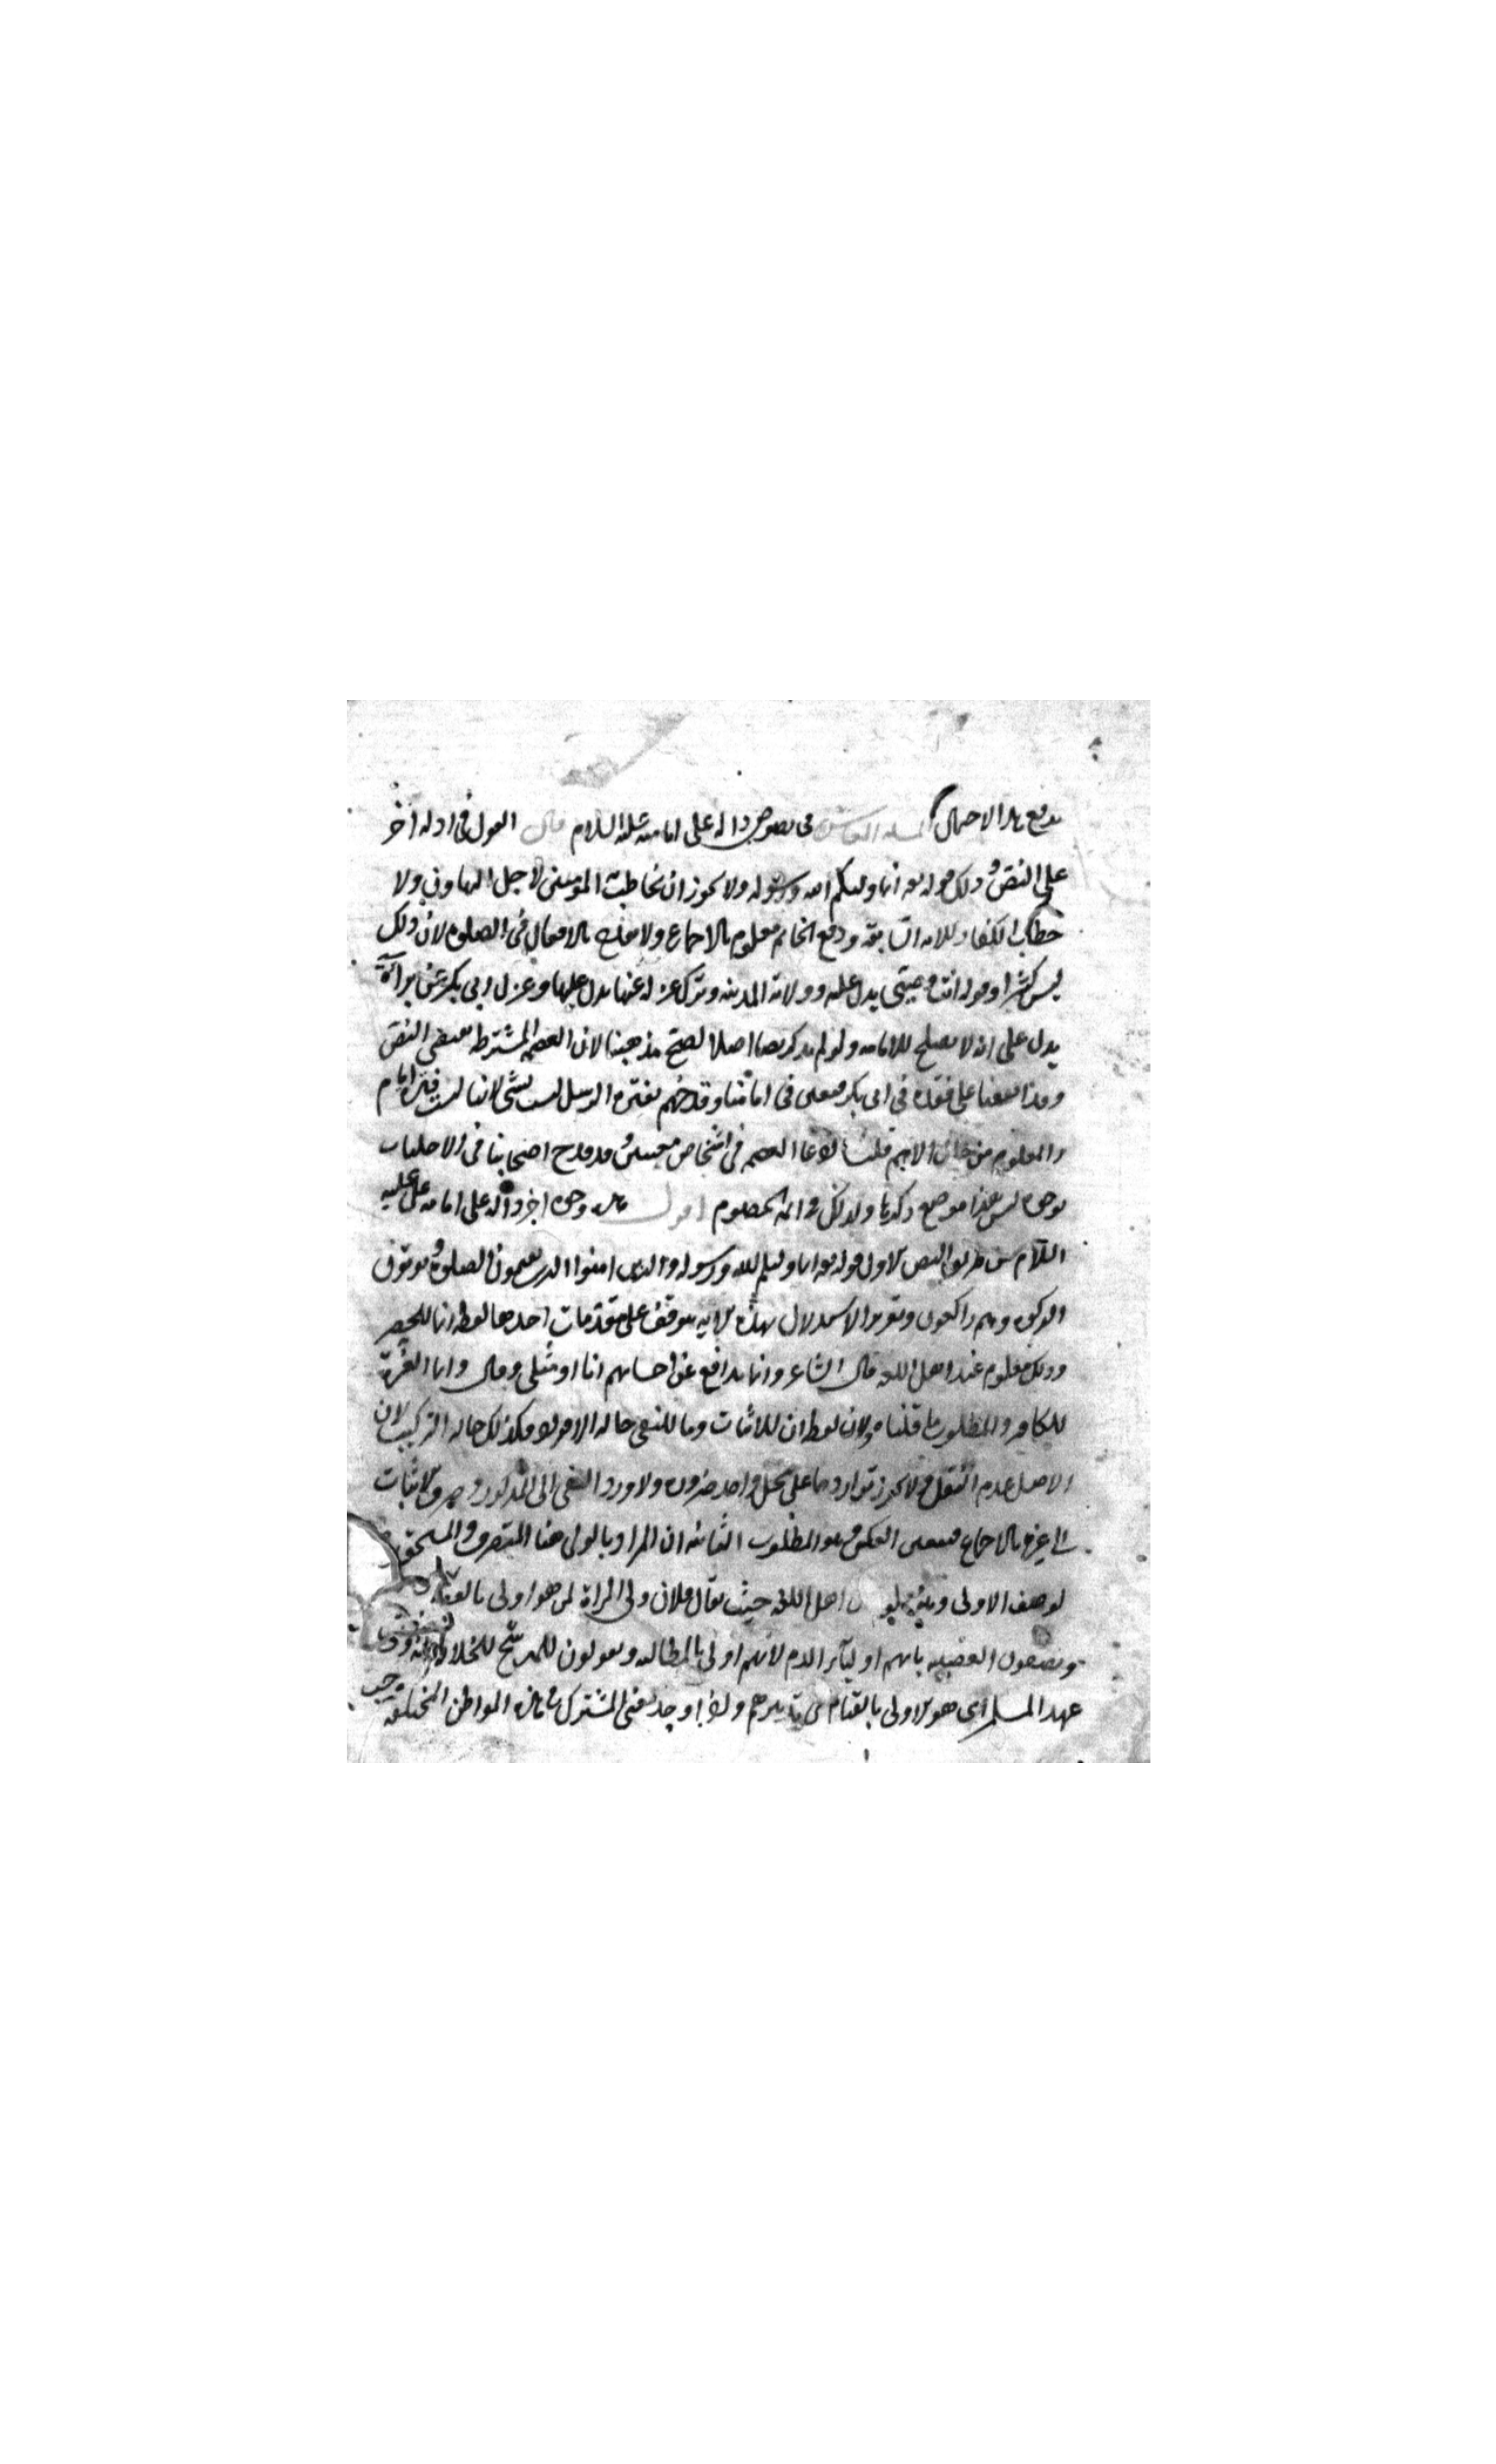 يدفع هذا الاحتمال المسئلة العاشرة في نصوص دالة على امامته عليه السلام قال القول في ادلة اخر
على النص وذلك قوله تعه انما وليكم الله ورسوله ولا يجوز ان يخاطب المؤمنين لاجل التهاون ولا
خطاب الكفار للاية السابقة ودفع الخاتم معلوم بالاجماع ولا يقدح بالافعال في الصلوة لان ذلك
ليس كثيرا وقوله انت وصيتي يدل عليه وولاية المدينة وترك عزله عنها يدل عليها وعزل ابي بكر عن براءة
يدل على انه لا يصلح للامامة ولو لم يذكر نصا اصلا لصح مذهبنا لان العصمة المشترطة تقتضي النص
وهذا يتفقنا على فقده في ابي بكر فتعين في امامنا وقدحهم بفترة الرسل ليست بشي لانها ليست فترة امام
والمعلوم من خال الائمة قلنا ادعا العصمة في اشخاص معينين وقد قدح اصحابنا في الاختيار
بوجوه ليس هذا موضع ذكرها ولذلك في ائمة الخصوم اقول هذه وجوه اخر دالة على امامة علي عليه
السلام من طريق النص الاول قوله تعه انما وليكم الله ورسوله والذين امنوا الذين يقيمون الصلوة ويؤتون
الزكوة وهم راكعون وتقرير الاستدلال بهذه الاية يتوقف على مقدمات احدها لفظة انما للحصر
وذلك معلوم عند اهل اللغة قال الشاعر وانما يدافع عن احسابهم انا او مثلي وقال وانما العزة
للكاثر والمطلوب ما قلناه ولان لفظة ان للاثبات وما للنفي حالة الافراد فكذلك حالة التركيب لان
الاصل عدم النقل ولا يجوز تواردهما على محل واحد ضرورة ولا ورد النفي الى المذكور وصرف الاثبات
الى غيره بالاجماع فتعين العكس وهو المطلوب الثانية ان المراد بالولي هنا المتصرف والمستحق
لوصف الاولى اهل اللغة حيث يقال فلان ولي المراة لمن هو اولى بالعقد
ويصفون العصبة بانهم اولياء الدم لانهم اولى بالمطالبة ويقولون للمرشح للخلافة
عهد المسلمين اي هو الاولى بالقيام في تدبيرهم واذا وجد معنى المشترك في هذه المواطن المختلفة وجب